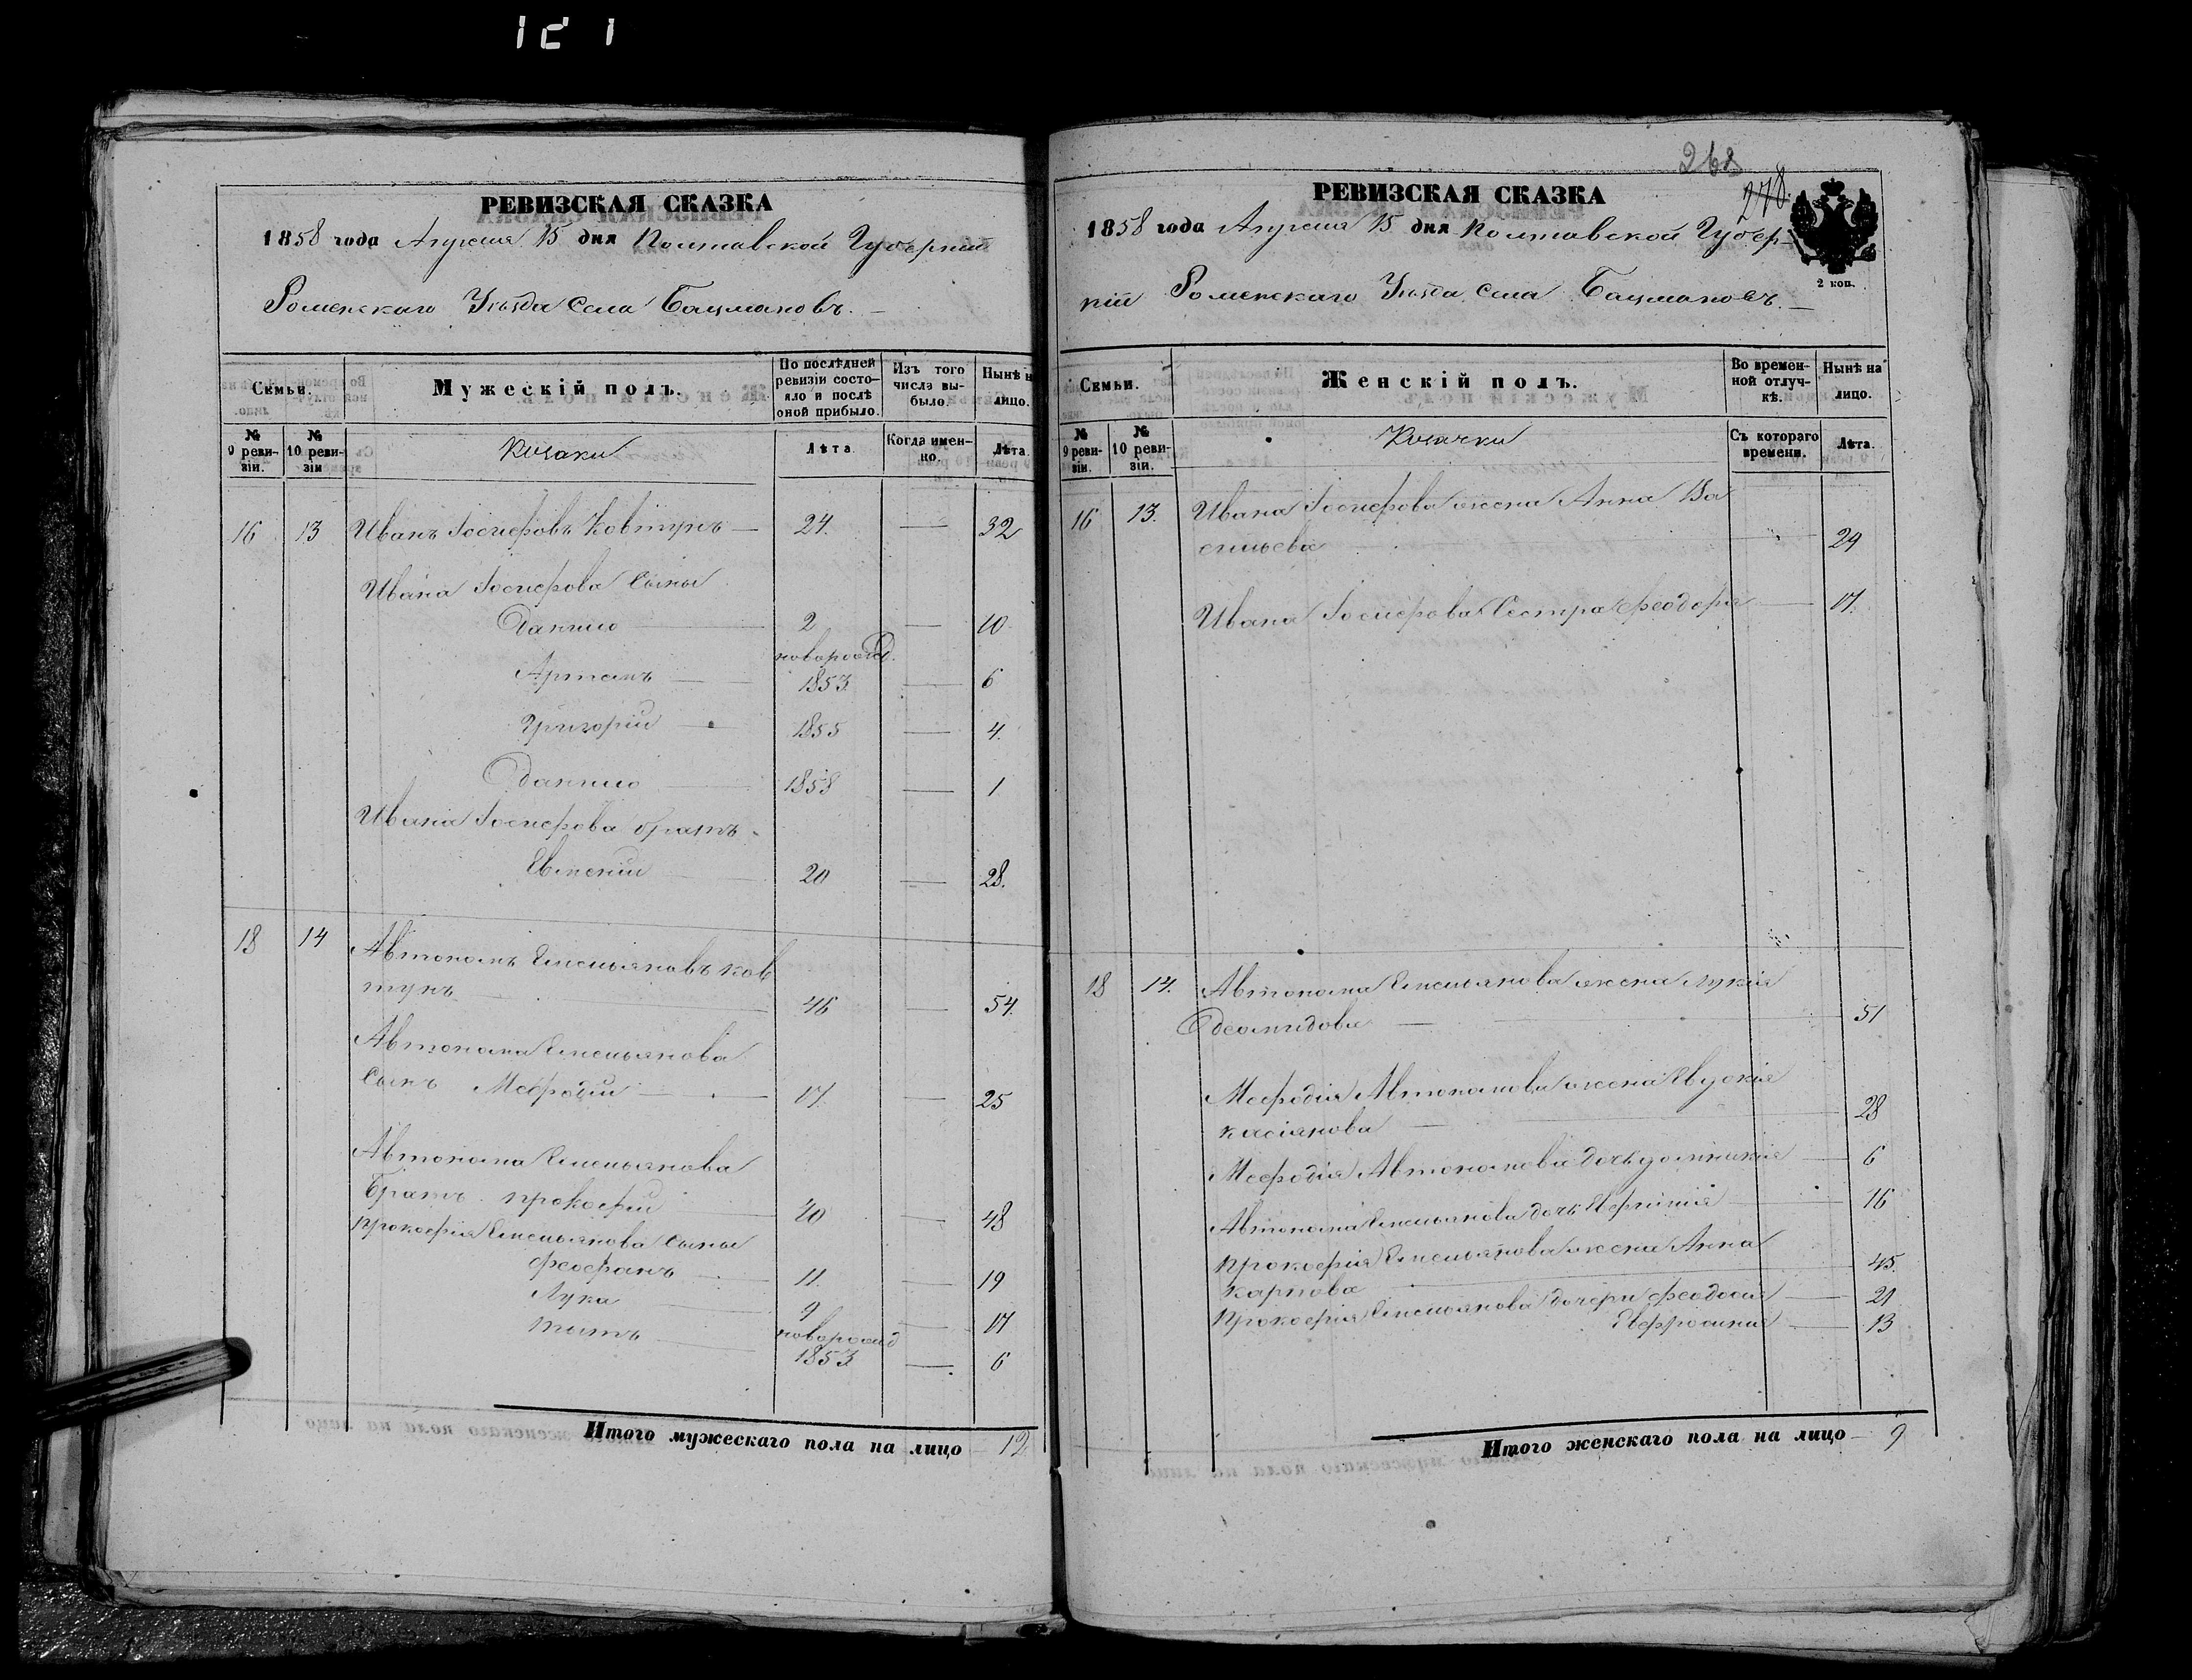 121
РЕВИЗСКАЯ СКАЗКА
1858 года Апреля 15 дня Полтавской Губерніи
Роменскаго Уезда Села Бацмановъ. —
Семьи.
Мужескій полъ.
По послѣдней ревизіи состояло и послѣ оной прибыло.
Изъ того числа выбыло.
Нынѣ на лицо.
№ 9 ревизіи.
№ 10 ревизіи
Козаки
Лѣта
Когда именно.
Лѣта.
16 13 Иванъ Іосифовъ Ковтунъ — 24. — 32
Ивана Іосифова Сыны
Данило 2 — 10
новорожд.
Артемъ — 1853 — 6
Григорій — 1855 — 4.
Данило 1858 — 1
Ивана Іосифова братъ
Евмений 20 — 28.
18 14 Автономъ Емельяновъ Ков
тунъ 46 — 54.
Автонома Емельянова
Сынъ Мефодій — 17. — 25
Автонома Емельянова
Братъ Прокофій 40 — 48
Прокофія Емельянова Сыны
Феофанъ — 11. — 19
Лука 9 — 17
новорожд
Титъ 1853 — 6
Итого мужескаго пола на лицо 12.
268
278
РЕВИЗСКАЯ СКАЗКА
1858 года Апреля 15 дня Полтавской Губер-
ніи Роменскаго Уезда Села Бацмановъ. —
2 коп.
Семьи.
Женскій полъ.
Во временной отлучкѣ.
Нынѣ на лицо.
№ 9 ревизіи.
№ 10 ревизіи.
Козачки
Съ котораго времени.
Лѣта.
16 13. Ивана Іосифова жена Анна Ва
сильева 29
Ивана Іосифова Сестра Феодора — 17.
18 14. Автонома Емельянова жена Лукія
Деомидова — 51
Мефодія Автономова жена Евдокія
Касіянова — 28
Мефодія Автономова дочь — 6
Автонома Емельянова дочь Евфимія 16
Прокофія Емельянова жена Анна
Карпова 45.
Прокофія Емельянова дочери Феодосія — 21
Евфросинія — 13
Итого женскаго пола на лицо — 9